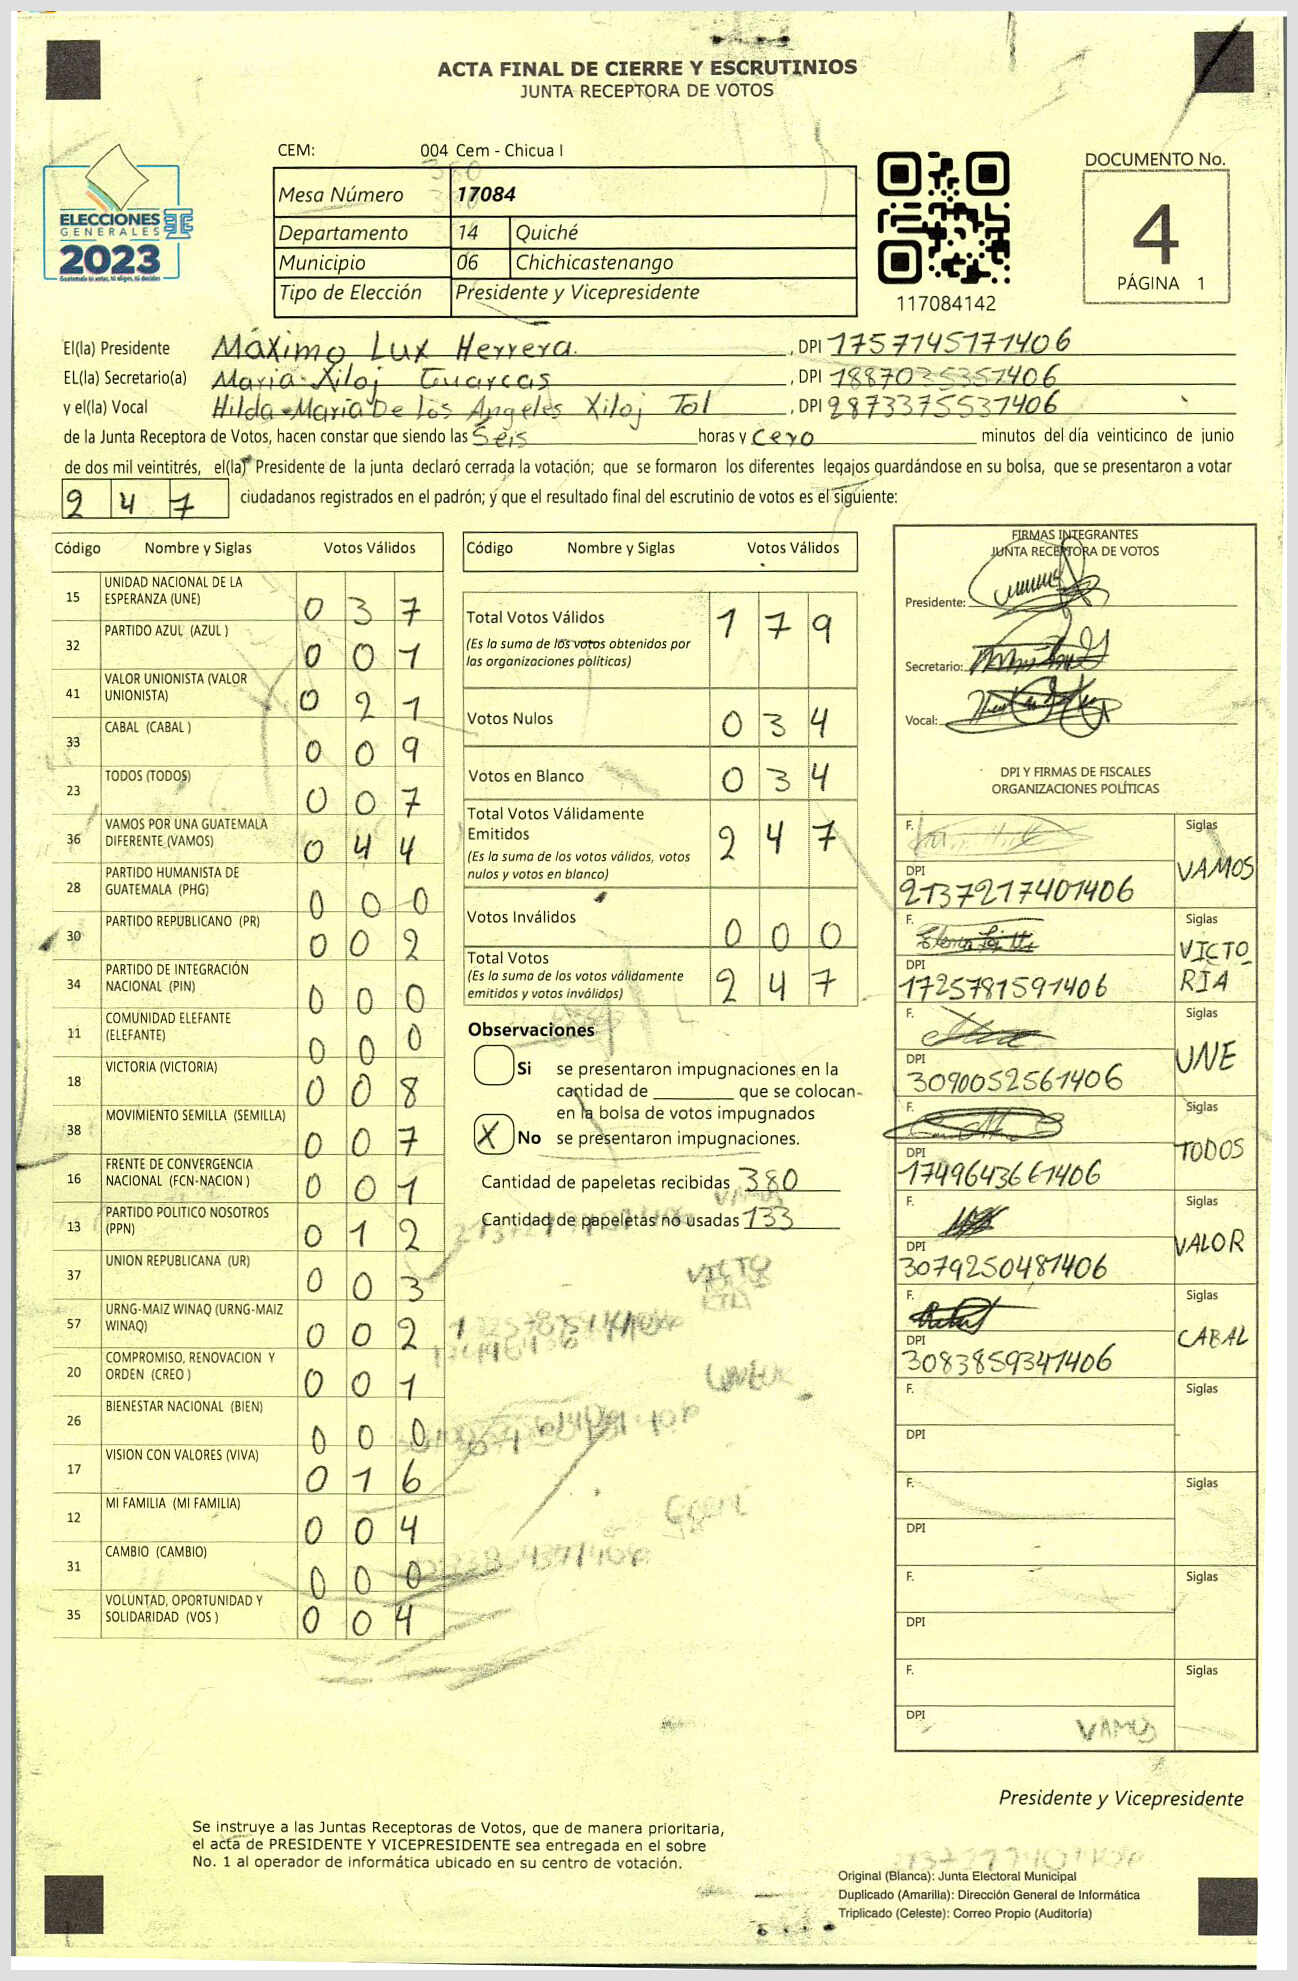 ACTA FINAL DE CIERRE Y ESCRUTINIOS
JUNTA RECEPTORA DE VOTOS
CEM: 004 Cem - Chicua I
Mesa Número 17084
Departamento 14 Quiché
Municipio 06 Chichicastenango
Tipo de Elección Presidente y Vicepresidente
ELECCIONES
GENERALES
2023
117084142
DOCUMENTO No.
4
PÁGINA 1
El(la) Presidente Máximo Lux Herrera. , DPI 1757145171406
EL(la) Secretario(a) Maria Xiloj Guarcas , DPI 1887035351406
y el(la) Vocal Hilda María De los Angeles Xiloj Tol , DPI 2873375531406
de la Junta Receptora de Votos, hacen constar que siendo las Seis horas y Cero minutos del día veinticinco de junio
de dos mil veintitrés, el(la) Presidente de la junta declaró cerrada la votación; que se formaron los diferentes legajos guardándose en su bolsa, que se presentaron a votar
2 4 7 ciudadanos registrados en el padrón; y que el resultado final del escrutinio de votos es el siguiente:
Código Nombre y Siglas Votos Válidos
15 UNIDAD NACIONAL DE LA
ESPERANZA (UNE) 0 3 7
32 PARTIDO AZUL (AZUL ) 0 0 1
41 VALOR UNIONISTA (VALOR
UNIONISTA) 0 2 1
33 CABAL (CABAL ) 0 0 9
23 TODOS (TODOS) 0 0 7
36 VAMOS POR UNA GUATEMALA
DIFERENTE (VAMOS) 0 4 4
28 PARTIDO HUMANISTA DE
GUATEMALA (PHG) 0 0 0
30 PARTIDO REPUBLICANO (PR) 0 0 2
34 PARTIDO DE INTEGRACIÓN
NACIONAL (PIN) 0 0 0
11 COMUNIDAD ELEFANTE
(ELEFANTE) 0 0 0
18 VICTORIA (VICTORIA) 0 0 8
38 MOVIMIENTO SEMILLA (SEMILLA) 0 0 7
16 FRENTE DE CONVERGENCIA
NACIONAL (FCN-NACION ) 0 0 1
13 PARTIDO POLITICO NOSOTROS
(PPN) 0 1 2
37 UNION REPUBLICANA (UR) 0 0 3
57 URNG-MAIZ WINAQ (URNG-MAIZ
WINAQ) 0 0 2
20 COMPROMISO, RENOVACION Y
ORDEN (CREO ) 0 0 1
26 BIENESTAR NACIONAL (BIEN) 0 0 0
17 VISION CON VALORES (VIVA) 0 1 6
12 MI FAMILIA (MI FAMILIA) 0 0 4
31 CAMBIO (CAMBIO) 0 0 0
35 VOLUNTAD, OPORTUNIDAD Y
SOLIDARIDAD (VOS ) 0 0 4
Código Nombre y Siglas Votos Válidos
Total Votos Válidos 1 7 9
(Es la suma de los votos obtenidos por
las organizaciones políticas)
Votos Nulos 0 3 4
Votos en Blanco 0 3 4
Total Votos Válidamente
Emitidos 2 4 7
(Es la suma de los votos válidos, votos
nulos y votos en blanco)
Votos Inválidos 0 0 0
Total Votos 2 4 7
(Es la suma de los votos válidamente
emitidos y votos inválidos)
Observaciones
Si se presentaron impugnaciones en la
cantidad de ________ que se colocan
en la bolsa de votos impugnados
X No se presentaron impugnaciones.
Cantidad de papeletas recibidas 380
Cantidad de papeletas no usadas 133
FIRMAS INTEGRANTES
JUNTA RECEPTORA DE VOTOS
Presidente:
Secretario:
Vocal:
DPI Y FIRMAS DE FISCALES
ORGANIZACIONES POLÍTICAS
F. Siglas
VAMOS
DPI
2137217401406
F. Siglas
VICTO
RIA
DPI
1725781591406
F. Siglas
UNE
DPI
3090052561406
F. Siglas
TODOS
DPI
1749643661406
F. Siglas
VALOR
DPI
3079250481406
F. Siglas
CABAL
DPI
3083859341406
F. Siglas
DPI
F. Siglas
DPI
F. Siglas
DPI
F. Siglas
DPI
VAMOS
Presidente y Vicepresidente
Se instruye a las Juntas Receptoras de Votos, que de manera prioritaria,
el acta de PRESIDENTE Y VICEPRESIDENTE sea entregada en el sobre
No. 1 al operador de informática ubicado en su centro de votación.
Original (Blanca): Junta Electoral Municipal
Duplicado (Amarilla): Dirección General de Informática
Triplicado (Celeste): Correo Propio (Auditoría)